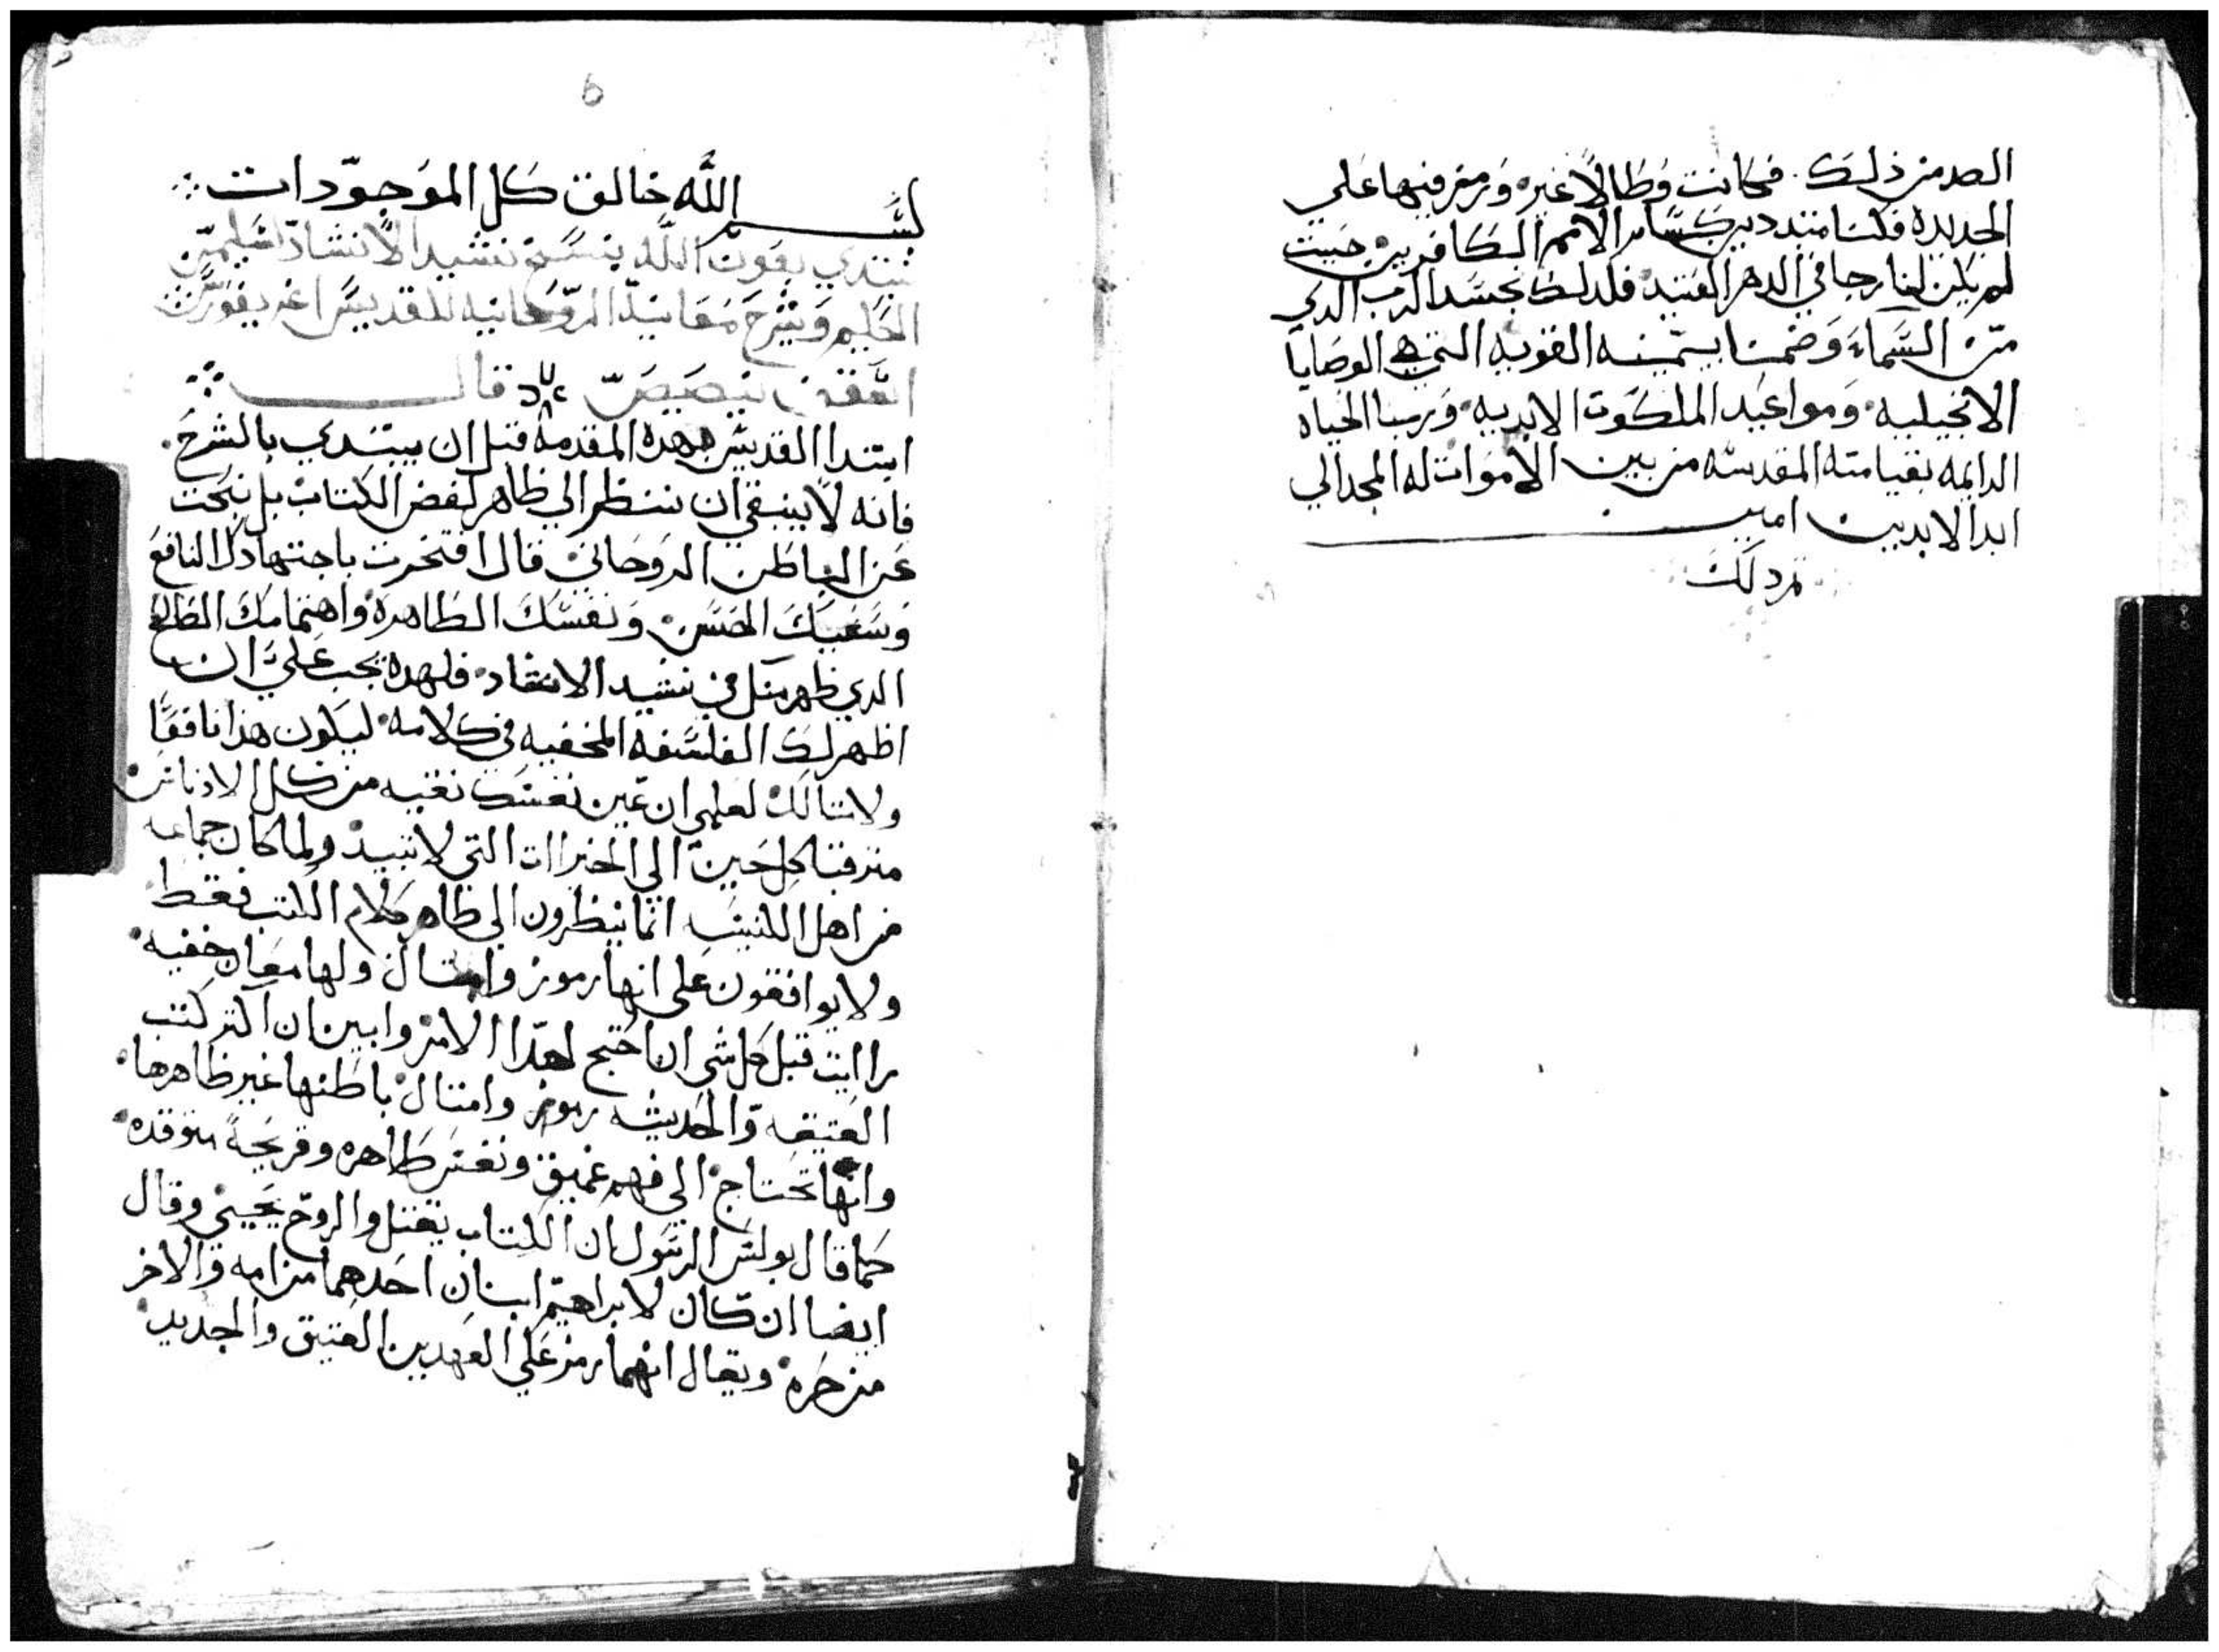 الصد من ذلك. فكانت وطالًا غيره ورمز فيها علي
الجديده فكنا متبددين كسائر الامم الكافرين حيت
لم يكن لنا رجا في الدهر العتيد فلدلك تجسد الرب الدي
من السماء وضمنا بيمينه القويه التي هي الوصايا
الانجيليه ومواعيد الملكوت الابديه وربنا الحياه
الدايمه بقيامته المقدسه من بين الاموات له المجد الي
ابد الابدين امين
تم دلك
6
بسم الله خالق كل الموجودات
نبتدي بقوت الله بنسخ نشيد الانشاد لسليمن
الحكيم وشرح معانيه الروحانيه للقديس اغريغوريوس
اسقف نيصص قال
ابتدا القديس بهده المقدمه قبل ان يبتدي بالشرح.
فانه لا ينبغي ان ننظر الي ظاهر لفض الكتاب بل نبحت
عن الباطن الروحاني قال افتخرت باجتهادك النافع
وسعيك الحسن ونفسك الطاهرة واهتمامك الصالح
الدي ظهر منك في نشيد الانشاد فلهده يجب علي ان
اظهر لك الفلسفه المخفيه في كلامه ليكون هدا نافعًا
ولا لك لعلمي ان عين نفسك نقيه من كل الادناس
مترقبا كل حين الي الخيرات التي لا تبيد ولما كان جماعه
من اهل الكنيسه انما ينظرون الي ظاهر كلام الكتب فقط
ولا يوافقون علي انها رموز وامتال ولها معان خفيه
راايت قبل كل شي ان احتج لهدا الامر وابين ان اكتر كتب
العتيقه والحديثه رموز وامتال باطنها غير ظاهرها
وانها تحتاج الي فهم عميق ونفس طاهره وقريحة متوقده
كما قال بولس الرسول ان الكتاب يقتل والروح يحيي وقال
ايضا ان كان لابراهيم ابنان احدهما من امه والاخر
من حره ويقال انهما رمز علي العهدين العتيق والجديد